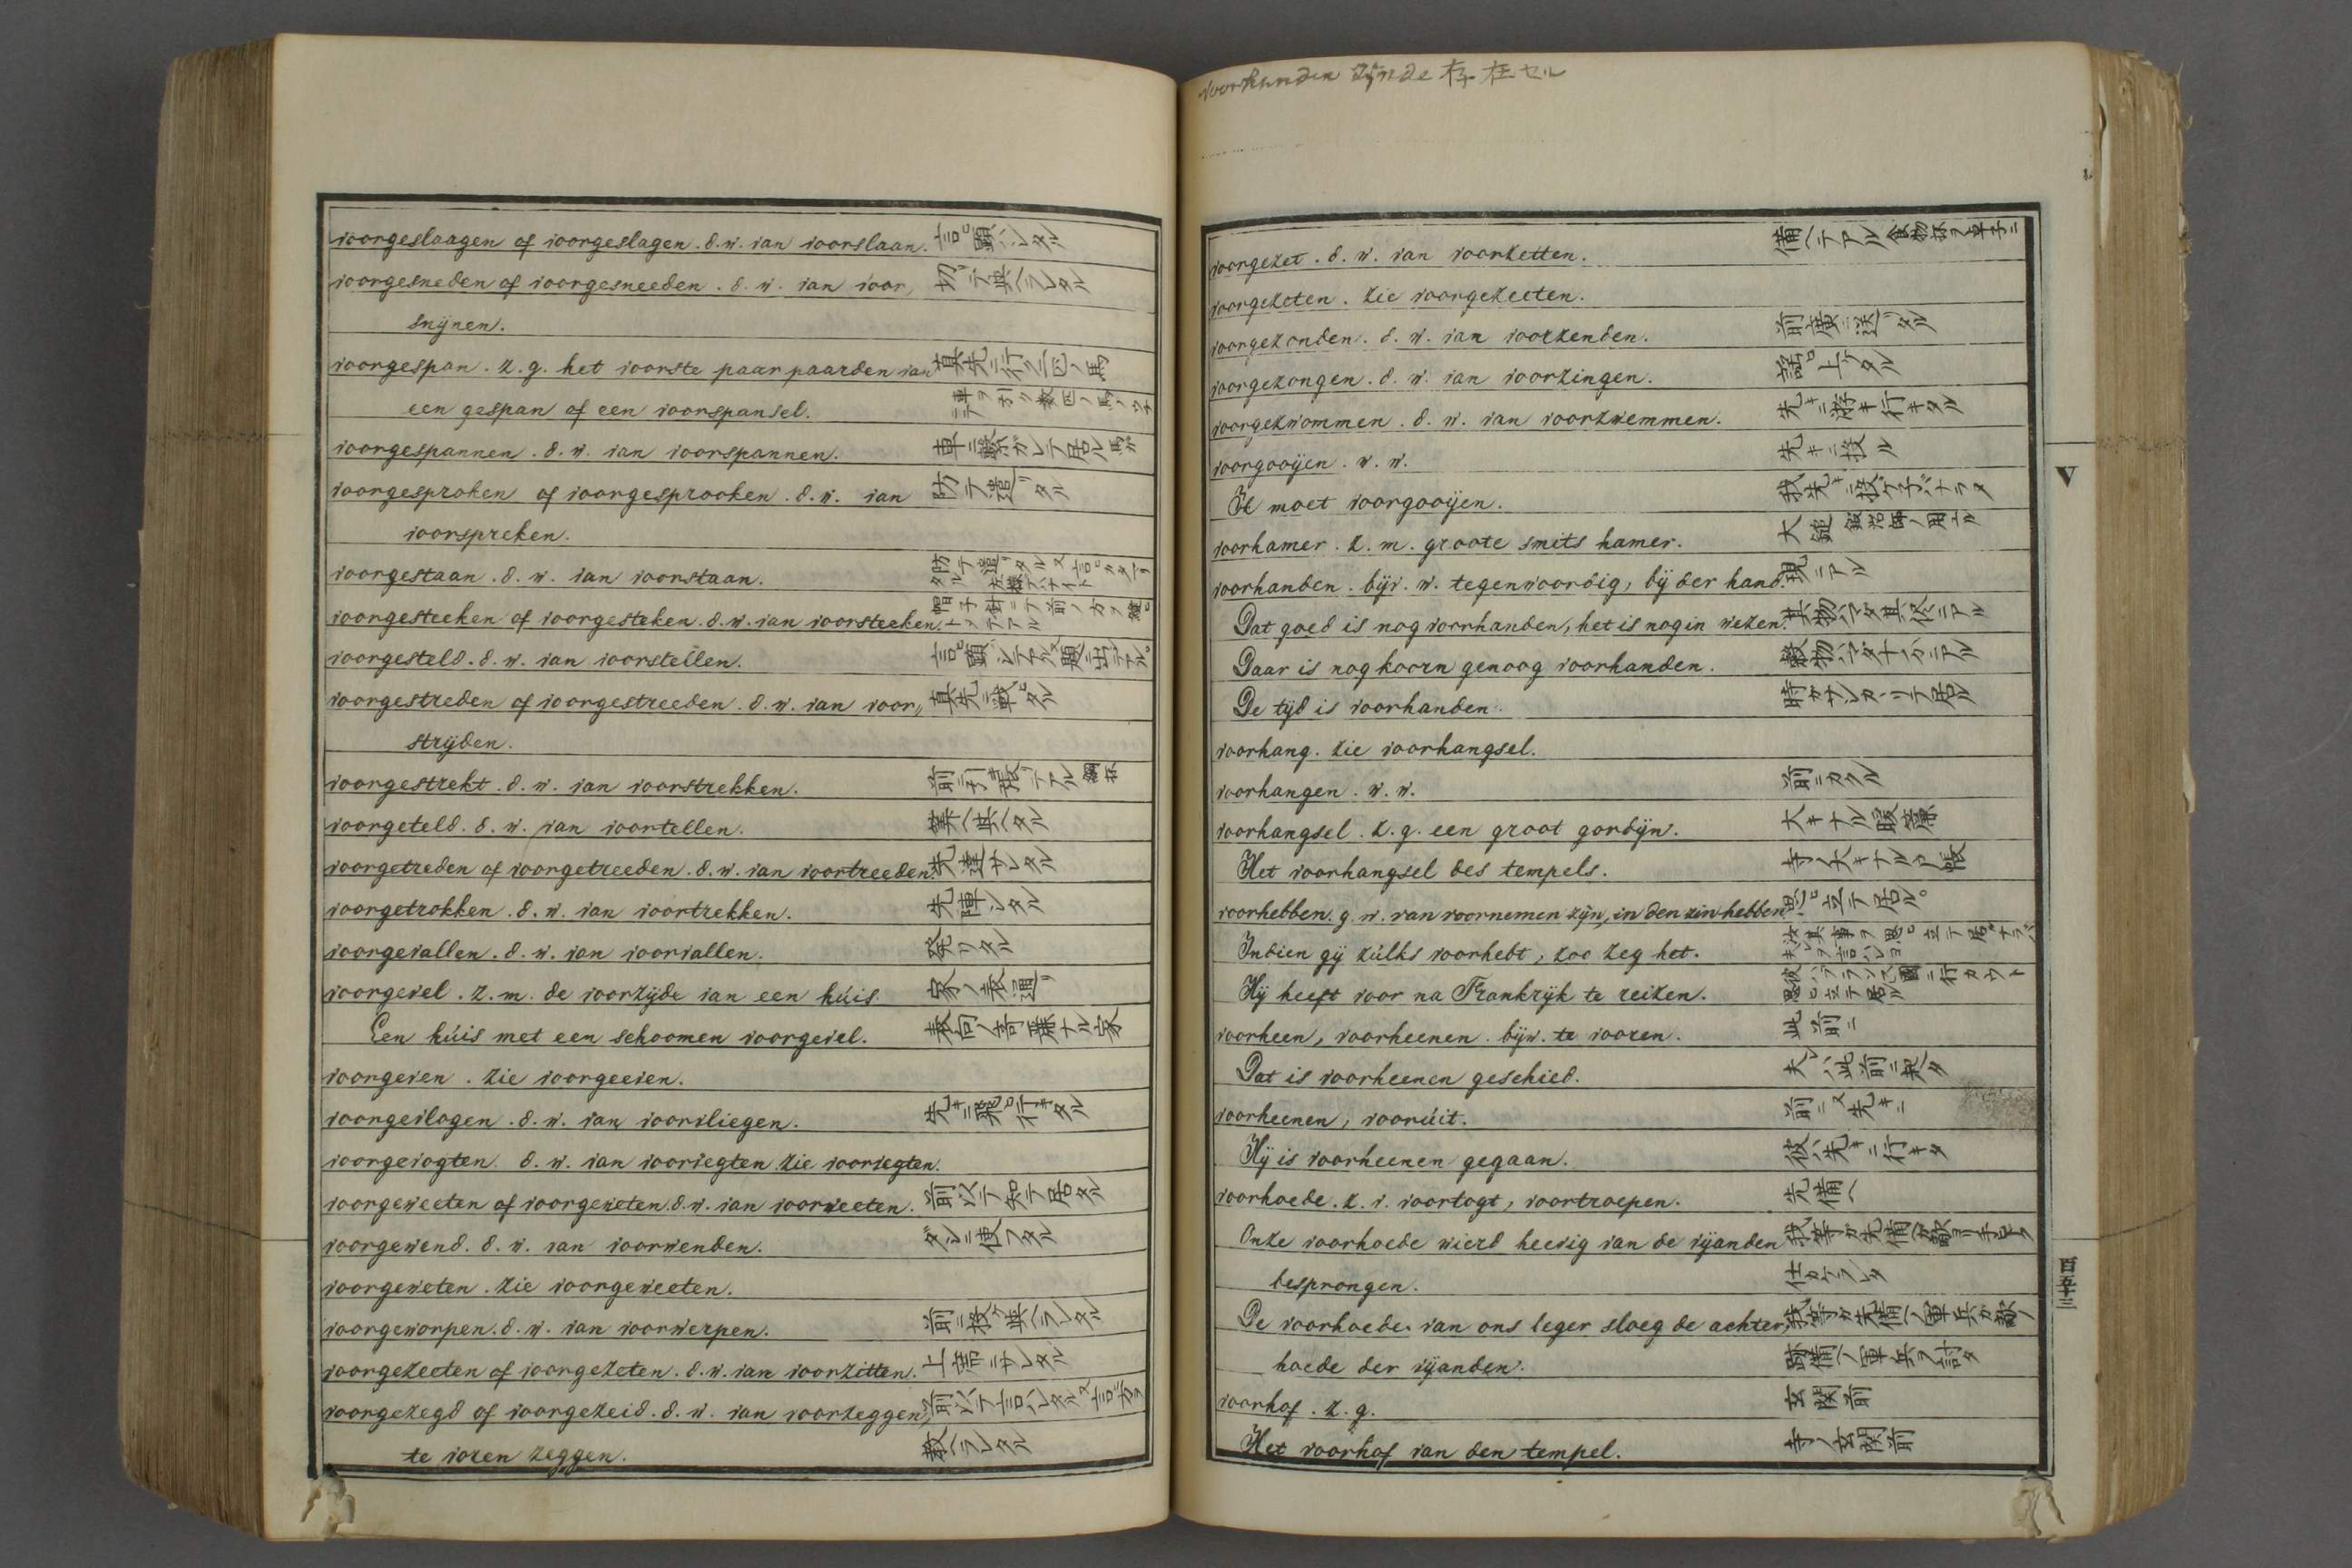 voorgeslaagen of voorgeslagen. d. w. van voorslaan. 言ヒ顕ハレタル
voorgesneden of voorgesneeden. d. w. van voor, 切リテ與ヘラレタル
snijnen.
voorgespan. z. g. het voorste paar paarden van 真先ニ行ク二匹ノ馬
een gespan of een voorspansel. 車ヲ引ク数匹ノ馬ノウチニテ
voorgespannen. d. w. van voorspannen. 車ニ繋ガレテ居ル 馬ガ
voorgesproken of voorgesprooken. d. w. van 防テ遣リタル
voorspreken.
voorgestaan. d. w. van voorstaan. 防テ遣リタル
voorgesteeken of voorgesteken. d. w. van voorsteeken.
voorgesteld. d. w. van voorstellen.
voorgestreden of voorgestreeden. d. w. van voor,, 真先ニ戦ヒタル
strijden.
voorgestrekt. d. w. van voorstrekken.
voorgeteld. d. w. van voortellen. 算ヘ與ヘタル
voorgetreden of voorgetreeden. d. w. van voortreeden. 先達サレタル
voorgetrokken. d. w. van voortrekken. 先陣シタル
voorgevallen. d. w. van voorvallen. 発リタル
voorgevel. z. m. de voorzijde van een húis. 家ノ表通リ
Een húis met een schoomen voorgevel. 表向ノ奇麗ナル家
voorgeven. zie voorgeeven.
voorgevlogen. d. w. van voorvliegen. 先キニ飛ヒ行キタル
voorgevogten. d. w. van voorvegten. zie voorvegten.
voorgeweeten of voorgeweten. d. w. van voorweeten. 前以テ知テ居タル
voorgewend. d. w. van voorwenden. ダシニ使フタル
voorgeweten. zie voorgeweeten.
voorgeworpen. d. w. van voorwerpen. 前ニ投ケ與ヘラレタル
voorgezeeten of voorgezeten. d. w. van voorzitten. 上席ニサレタル
voorgezegd of voorgezeid. d. w. van voorzeggen, 前以テ言ハレタル
te voren zeggen. 教ヘラレタル
voorhanden zijnde 存在セル
voorgezet. d. w. van voorzetten. 備ヘテアル
voorgezeten. zie voorgezeeten.
voorgezonden. d. w. van voorzenden. 前廣ニ送リタル
voorgezongen. d. w. van voorzingen. 謡ヒ上ケタル
voorgezwommen. d. w. van voorzwemmen. 先キニ游キ行キタル
voorgooijen. w. w. 先キニ投ル
Ik moet voorgooijen. 我先キニ投ケ子バナラヌ
voorhamer. z. m. groote smits hamer. 大鎚 鍛冶師ノ用ユル
voorhanden. bijv. w. tegenwoordig, bij der hand. 現ニアル
Dat goed is nog voorhanden, het is nog in wezen. 其物ハマダ其侭ニアル
Daar is nog koorn genoog voorhanden. 穀物ハマダ十分ニアル
De tijd is voorhanden. 時ガサシカヽリテ居ル
voorhang. zie voorhangsel.
voorhangen. w. w. 前ニカクル
voorhangsel. z. g. een groot gordijn. 大キナル暖簾
Het voorhangsel des tempels. 寺ノ大キナル戸帳
voorhebben. g. w. van voornemen zijn, in den zin hebben. 思ヒ立テ居ル。
Indien gij zúlks voorhebt, zoo zeg het. 汝其事ヲ思ヒ立テ居ルナラバ夫レヲ言ハレヨ
Hij heeft voor na Frankrijk te reizen. 彼ハフランス國ニ行カウト思ヒ立テ居ル
voorheen, voorheenen. bijw. te vooren. 此前ニ
Dat is voorheenen geschied. 夫レハ此前ニ起タ
voorheenen, voorúit. 前ニ又先キニ
Hij is voorheenen gegaan. 彼ハ先キニ行キタ
voorhoede. z. v. voortogt, voortroepen. 先備ヘ
Onze voorhoede wierd heevig van de vijanden 我等ガ先備ヘガ敵ヨリ手甚ク
besprongen. 仕カケラレタ
De voorhoede van ons leger sloeg de achter, 我等ガ先備ヘノ軍兵ガ敵ノ
hoede der vijanden. 跡備ヘノ軍兵ヲ討タ
voorhof. z. g. 玄関前
Het voorhof van den tempel. 寺ノ玄関前
V
百五十三